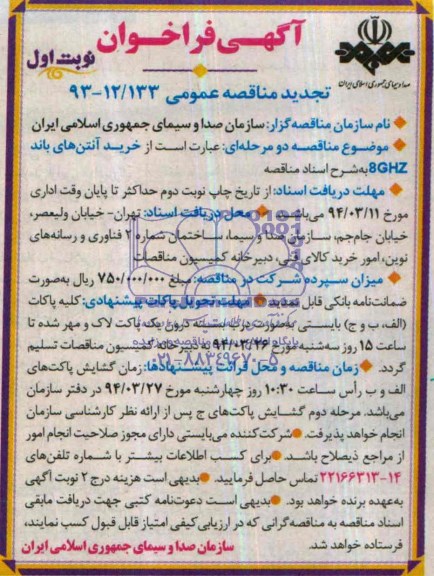 آگهی فراخوان
نوبت اول
صدا و سیمای جمهوری اسلامی ایران
تجدید مناقصه عمومی ۹۳-۱۲/۱۳۳
نام سازمان مناقصه گزار: سازمان صدا و سیمای جمهوری اسلامی ایران
موضوع مناقصه دو مرحله‌ای: عبارت است از خرید آنتن‌های باند
8GHZ به شرح اسناد مناقصه
مهلت دریافت اسناد: از تاریخ چاپ نوبت دوم حداکثر تا پایان وقت اداری
مورخ ۹۴/۰۳/۱۱ می‌باشد. محل دریافت اسناد: تهران- خیابان ولیعصر،
خیابان جام‌جم، سازمان صدا و سیما، ساختمان شماره ۲ فناوری و رسانه‌های
نوین، امور خرید کالای فنی، دبیرخانه کمیسیون مناقصات
میزان سپرده شرکت در مناقصه: مبلغ ۷۵۰/۰۰۰/۰۰۰ ریال به‌صورت
ضمانت‌نامه بانکی قابل تمدید مهلت تحویل پاکات پیشنهادی: کلیه پاکات
(الف، ب و ج) بایستی به‌صورت در بسته درون یک پاکت لاک و مهر شده تا
ساعت ۱۵ روز سه‌شنبه مورخ ۹۴/۰۳/۲۶ به دبیرخانه کمیسیون مناقصات تسلیم
گردد. زمان مناقصه و محل قرائت پیشنهادها: زمان گشایش پاکت‌های
الف و ب رأس ساعت ۱۰:۳۰ روز چهارشنبه مورخ ۹۴/۰۳/۲۷ در دفتر سازمان
می‌باشد. مرحله دوم گشایش پاکت‌های ج پس از ارائه نظر کارشناسی سازمان
انجام خواهد پذیرفت. شرکت‌کننده می‌بایستی دارای مجوز صلاحیت انجام امور
از مراجع ذیصلاح باشد. برای کسب اطلاعات بیشتر با شماره تلفن‌های
۲۲۱۶۶۳۱۳-۱۴ تماس حاصل فرمایید. بدیهی است هزینه درج ۲ نوبت آگهی
به‌عهده برنده خواهد بود. بدیهی است دعوت‌نامه کتبی جهت دریافت مابقی
اسناد مناقصه به مناقصه‌گرانی که در ارزیابی کیفی امتیاز قابل قبول کسب نمایند،
فرستاده خواهد شد.
سازمان صدا و سیمای جمهوری اسلامی ایران
۰۲۱-۸۸۳۴۹۶۷۰-۵